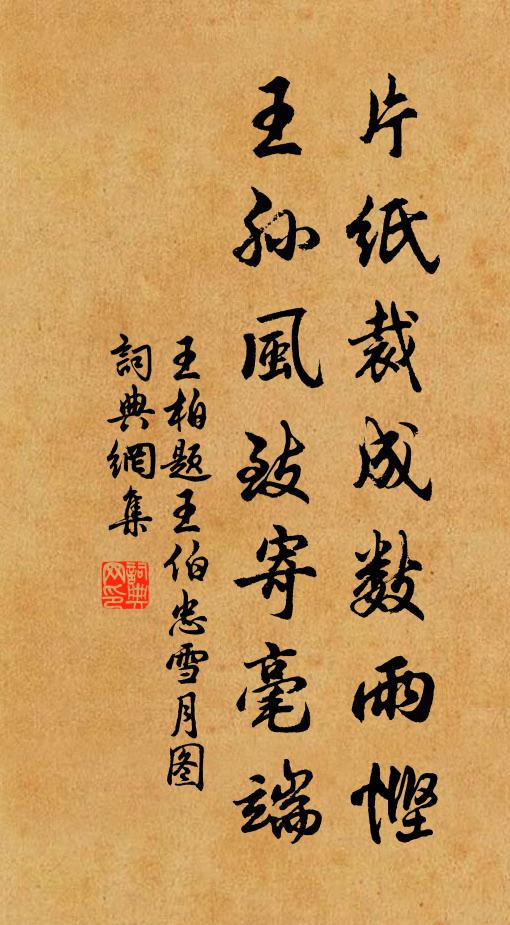 片紙裁成数兩慳
王孙風致寄毫端
王柏题王伯忠雪月图
詞典網集
詞典網印